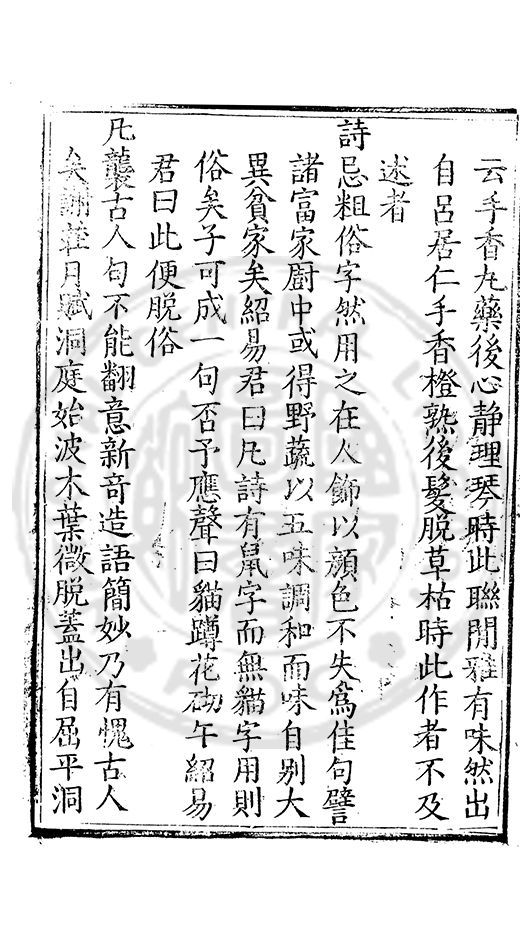 云手香丸藥後心静理琴時此聯閒雅有味然出
自呂居仁手香橙熟後髮脱草枯時此作者不及
述者
詩忌粗俗字然用之在人飾以顔色不失爲佳句譬
諸富家厨中或得野蔬以五味調和而味自别大
異貧家矣紹易君曰凡詩有鼠字而無貓字用則
俗矣子可成一句否予應聲曰貓蹲花砌午紹易
君曰此便脱俗
凡襲古人句不能翻意新奇造語簡妙乃有愧古人
矣謝莊月賦洞庭始波木葉微脱蓋出自屈平洞